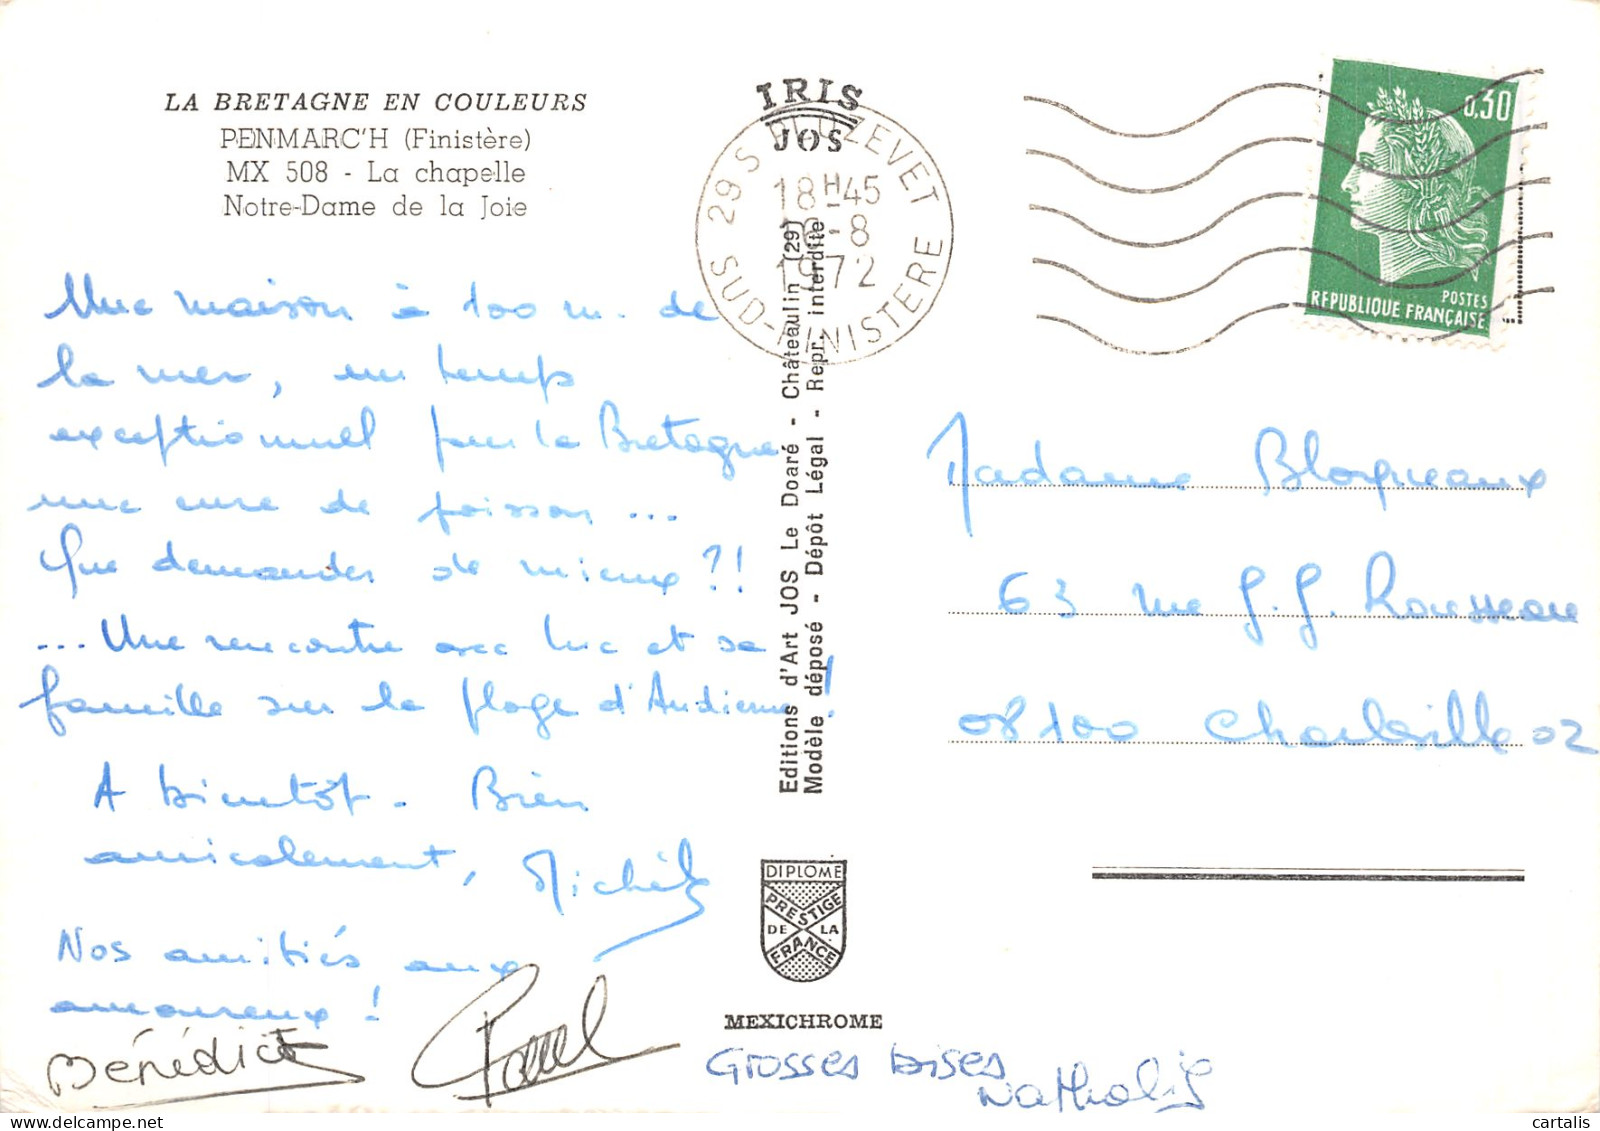 LA BRETAGNE EN COULEURS
PENMARC'H (Finistère)
MX 508 - La chapelle
Notre-Dame de la Joie
IRIS
JOS
29 S PLOZEVET
18H45
-8
1972
SUD-FINISTERE
0,30
POSTES
REPUBLIQUE FRANÇAISE
Une maison à 100 m. de
la mer, un temps
exceptionnel pour la Bretagne
une cure de poisson ...
Que demander de mieux ?!!
... Une rencontre avec Luc et sa
famille sur la plage d'Audierne !
A bientôt - Bien
amicalement, Michèle
Nos amitiés aux
amoureux !
Bénédicte
Paul
Grosses bises
Nathalie
Editions d'Art JOS Le Doaré - Châteaulin (29)
Modèle déposé - Dépôt Légal - Repr. interdite
DIPLOME
PRESTIGE
DE LA
FRANCE
MEXICHROME
Madame Blorqueaux
63 rue J.J. Rousseau
08100 Charleville 02
cartalis